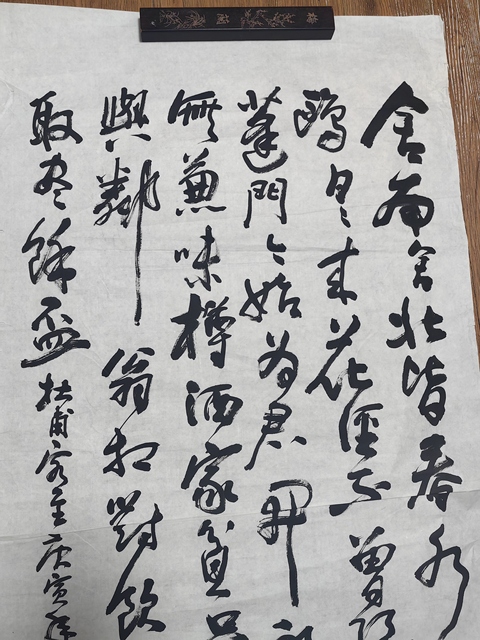 舍南舍北皆春水
鷗日日来花徑不曾緣
蓬門今始为君開
無兼味樽酒家貧只
與鄰翁相對飲
取尽餘盃 杜甫客至 庚寅